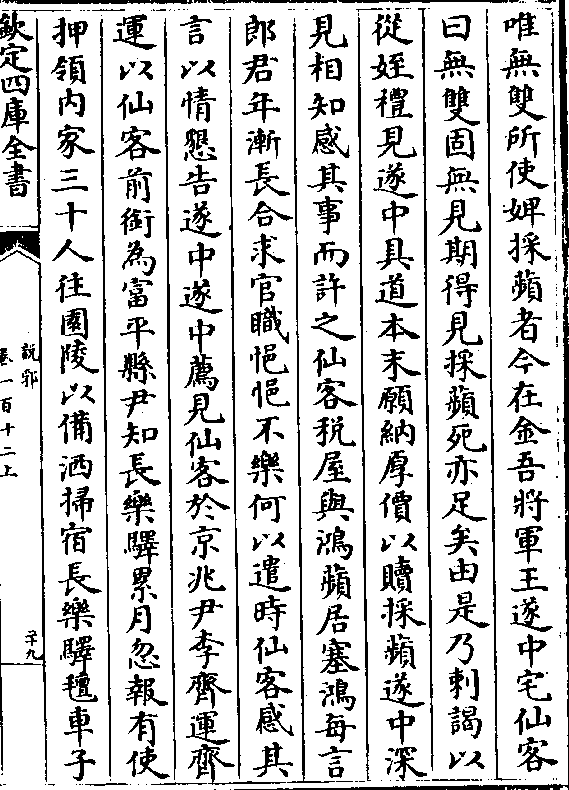 唯無雙所使婢採蘋者今在金吾將軍王遂中宅仙客
曰無雙固無見期得見採蘋死亦足矣由是乃刺謁以
從姪禮見遂中具道本末願納厚價以贖採蘋遂中深
見相知感其事而許之仙客稅屋與鴻蘋居塞鴻每言
郎君年漸長合求官職悒悒不樂何以遣時仙客感其
言以情懇告遂中遂中薦見仙客於京兆尹李齊運齊
運以仙客前銜為富平縣尹知長樂驛累月忽報有使
押領內家三十人往園陵以備洒掃宿長樂驛氊車子
欽定四庫全書
說郛
卷一百十二上
二十九